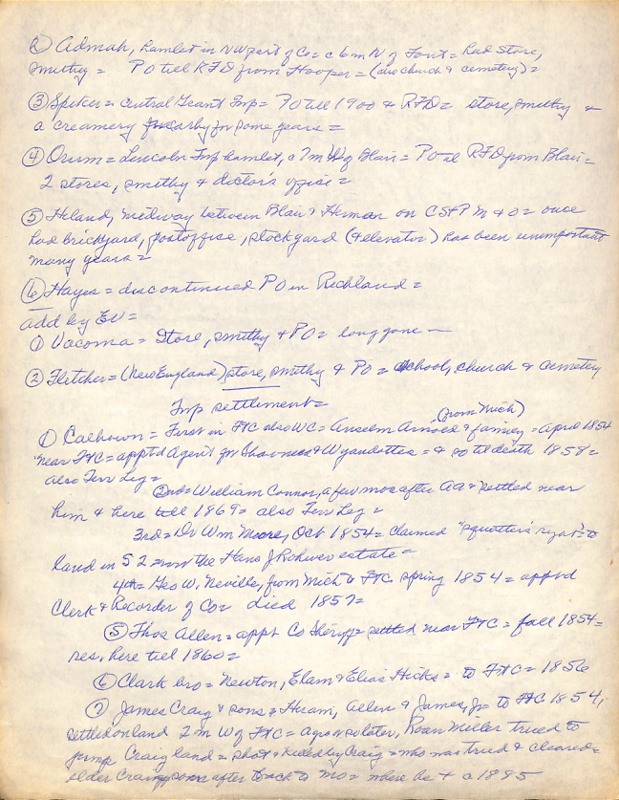 ② Admah, hamlet in NW part of Co = c 6 m N of Font = had store,
smithy = PO till RFD from Hooper = (also church & cemetery) =
③ Spiker = central Grant Twp = PO till 1900 & RFD = store, smithy &
a creamery nearby for some years =
④ Orum = Lincoln Twp hamlet, c 7 m W of Blair = PO til RFD from Blair =
2 stores, smithy & doctor's office =
⑤ Hiland, midway between Blair & Herman on CStP M & O = once
had brickyard, postoffice, stockyard (& elevator) has been unimportant
many years =
⑥ Hayes = discontinued PO in Richland =
add by EV =
① Vacoma = Store, smithy & PO = long gone —
② Fletcher = (New England) store, smithy & PO = school, church & cemetery
Twp settlement =
① Calhoun = First in FtC also WC = Anselm Arnold (from Mich) & family = April 1854
near FtC = appt'd Agent for Shawnees & Wyandottes = & so til death 1858 =
also Terr Leg =
2nd = William Connor, a few mos after AA = settled near
him & here till 1869 = also Terr Leg =
3rd = Dr Wm Moore, Oct 1854 = claimed "squatter's right" to
land in S 2 now the Hans J Rohwer estate =
4th = Geo W. Neville, from Mich to FtC spring 1854 = apptd
Clerk & Recorder of Co = died 1857 =
⑤ Thos Allen = appt Co Sheriff = settled near FtC = fall 1854 =
res. here till 1860 =
⑥ Clark bro = Newton, Elam & Elias Hicks = to FtC = 1856
⑦ James Craig & sons = Hiram, Allen & James, Jr to FtC 1854,
settled on land 2 m W of FtC = Roan Miller tried to
jump Craig land = shot & killed by Craig = who was tried & cleared =
older Craig soon after back to Mo = where he + c 1885